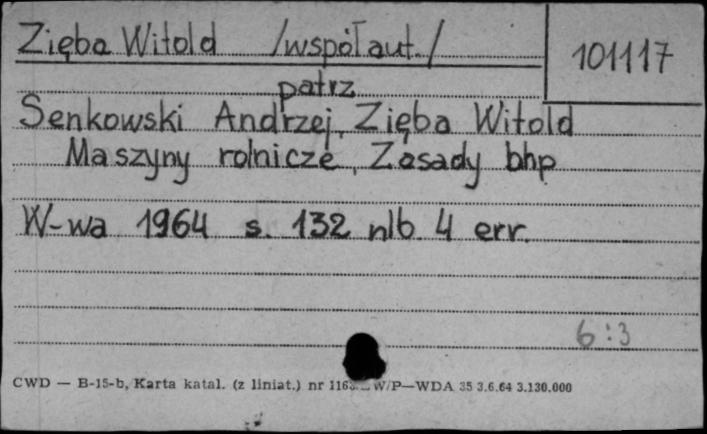 Zięba Witold /współaut./
101117
patrz
Senkowski Andrzej, Zięba Witold
Maszyny rolnicze, Zasady bhp
W-wa 1964 s. 132 nlb. 4 err.
6:3
CWD — B-15-b, Karta katal. (z liniat.) nr W/P—WDA 35 3.6.64 3.130.000